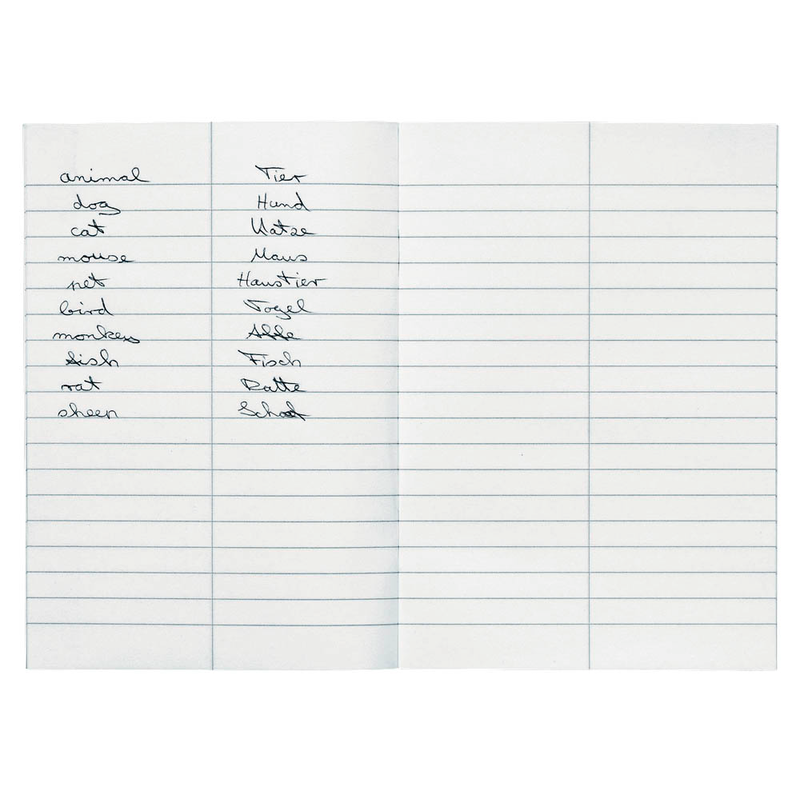 animal Tier
dog Hund
cat Katze
mouse Maus
pet Haustier
bird Vogel
monkey Affe
fish Fisch
rat Ratte
sheep Schaf